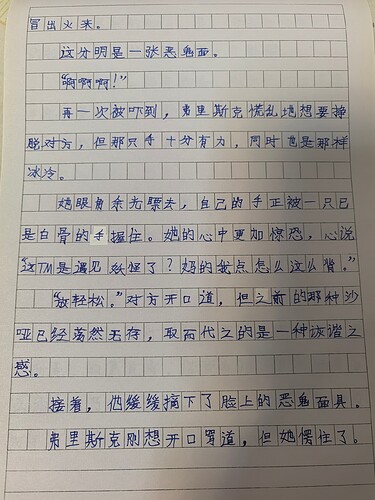 冒出火来。
这分明是一张恶鬼面。
“啊啊啊！”
再一次被吓到，弗里斯克慌乱地想要挣
脱对方，但那只手十分有力，同时也是那样
冰冷。
她眼角余光瞟去，自己的手正被一只已
是白骨的手握住。她的心中更加惊恐，心说
“这TM是遇见妖怪了？妈的我点怎么这么背。”
“放轻松。”对方开口道，但之前的那种沙
哑已经荡然无存，取而代之的是一种诙谐之
感。
接着，他缓缓摘下了脸上的恶鬼面具。
弗里斯克刚想开口骂道，但她愣住了。